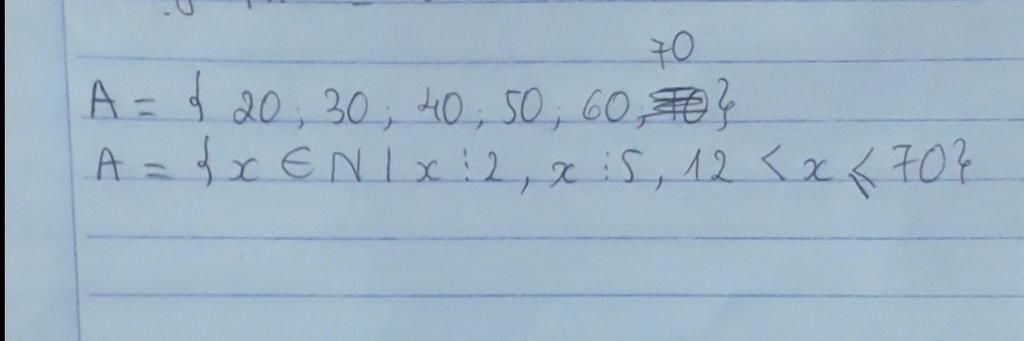 70
A = { 20; 30; 40; 50; 60; }
A = {x ∈ N | x ⋮ 2, x ⋮ 5, 12 < x ⩽ 70}